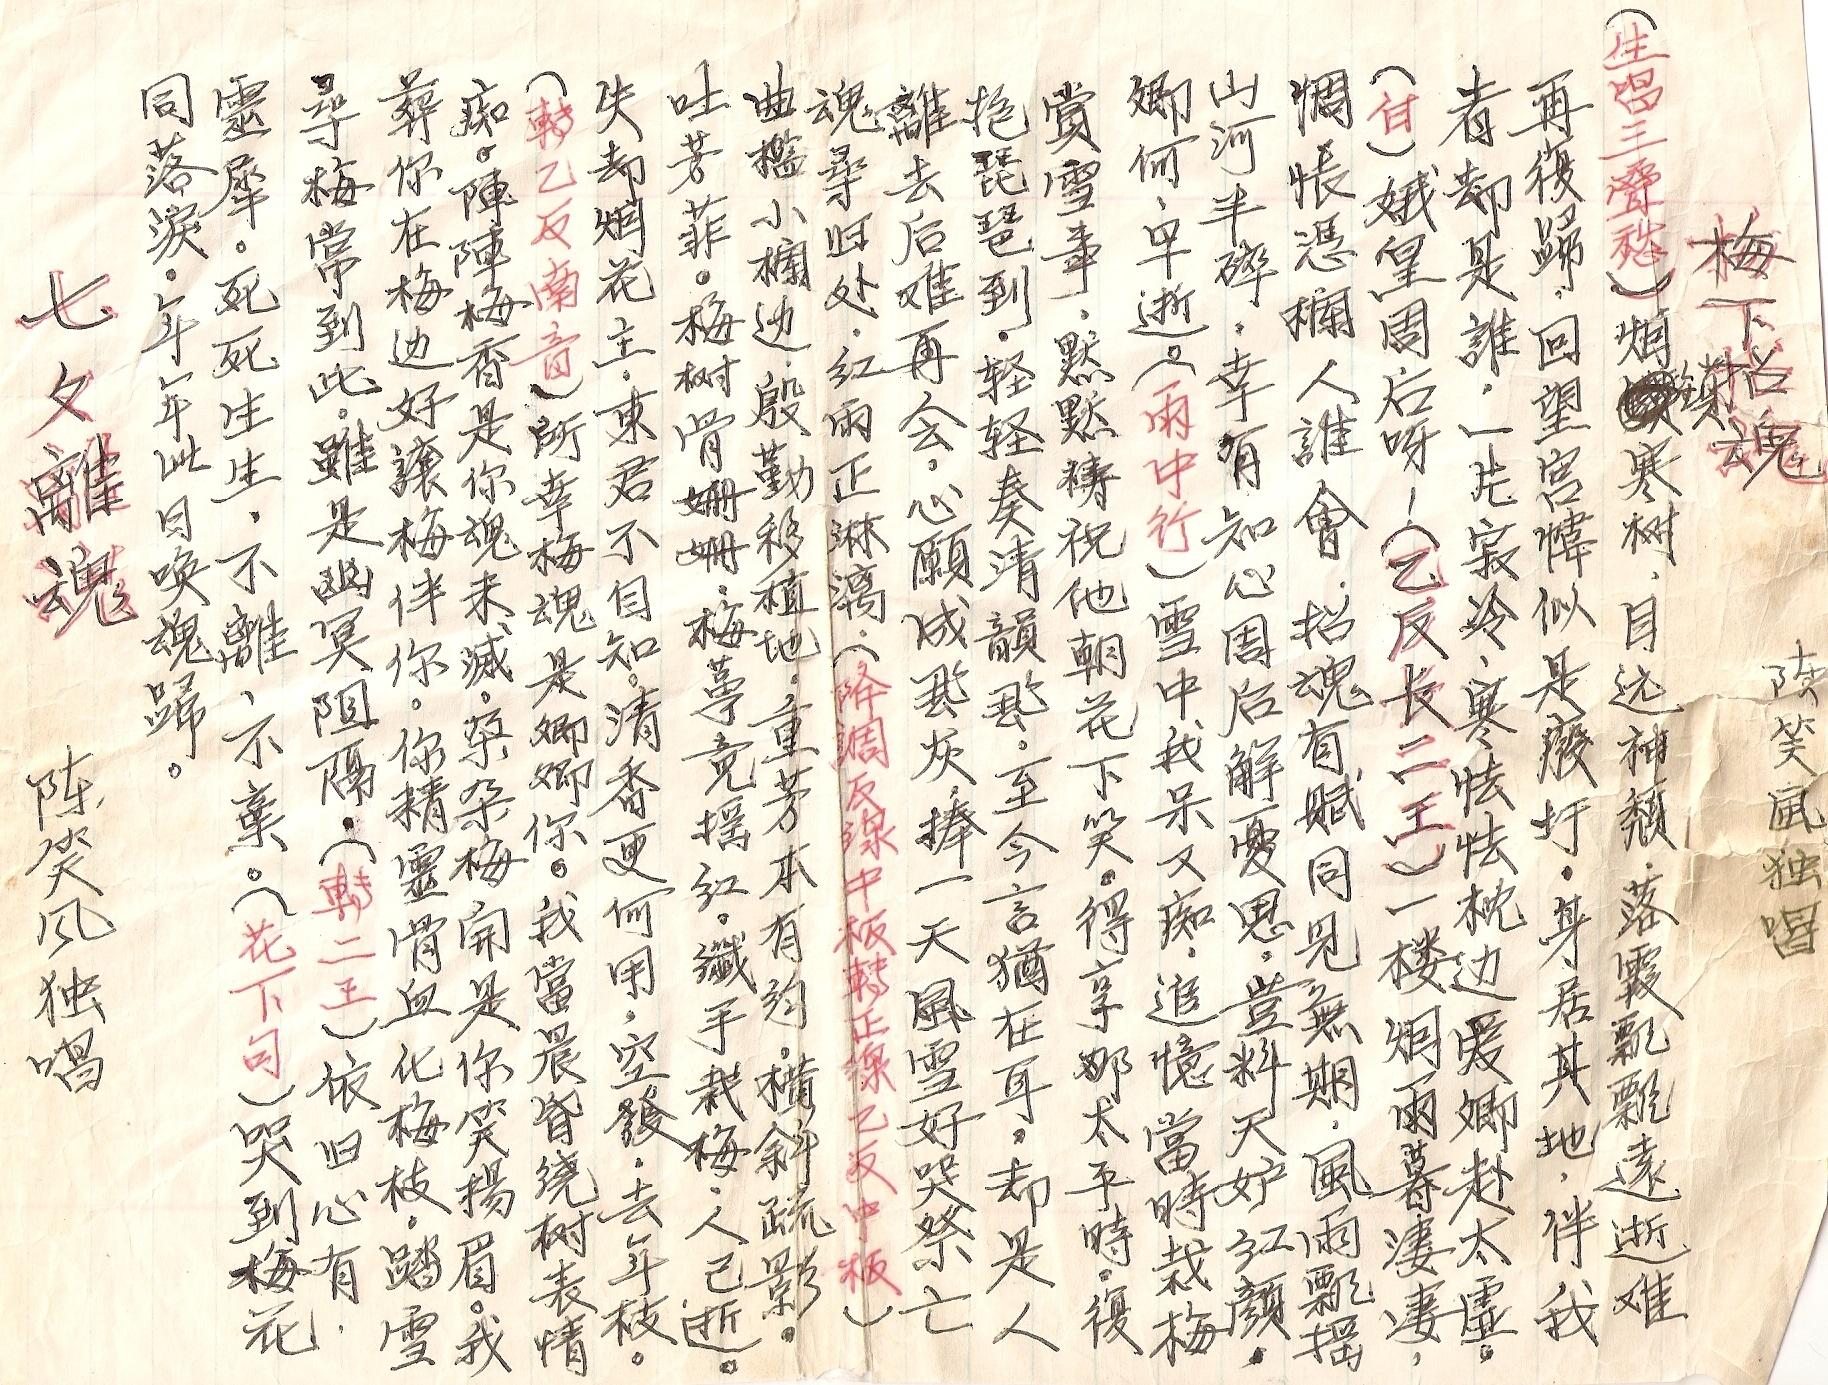 梅下招魂
陈笑風独唱
(生唱三聲愁)烟鎖寒树，目远神頹，落霞飄飄遠逝难
再復歸，回望宮幃似是癈圩。身居其地，伴我
者却是誰，一片寂冷，寒怯怯枕边愛卿赴太虛。
(白)娥皇周后呀！(乙反长二王)一楼烟雨暮淒淒，
惆悵憑欄人誰會，招魂有賦同見無期，風雨飄摇
山河半碎，幸有知心周后解憂思，豈料天妒紅顏，
卿何早逝。(雨中行)雪中我呆又痴，追憶當時栽梅
賞雪事，默默禱祝他朝花下笑。得享那太平時，復
抱琵琶到，轻轻奏清韻
至今言猶在耳。却是人
離去后难再会，心願成
灰，捧一天風雪好哭祭亡
魂尋旧处，红雨正淋漓，(降調反線中板轉正線乙反中板)
曲檻小欄边，殷勤移植地，重芳本有約，橫斜疏影。
吐芳菲。梅树骨姍姍，梅萼竞摇红。纖手栽梅，人已逝。
失却烟花主，東君不自知。清香更何用，空發，去年枝。
(轉乙反南音)所幸梅魂是卿卿你。我當晨昏绕树表情
痴。陣陣梅香是你魂未滅。朵朵梅開是你笑揚眉。我
葬你在梅边好讓梅伴你。你精靈骨血化梅枝。踏雪
尋梅常到此。雖是幽冥阻隔，(轉二王)依旧心有，
靈犀。死死生生，不離、不棄。(花下句)哭到梅花
同落淚。年年此日喚魂歸。
七夕離魂
陈笑风独唱